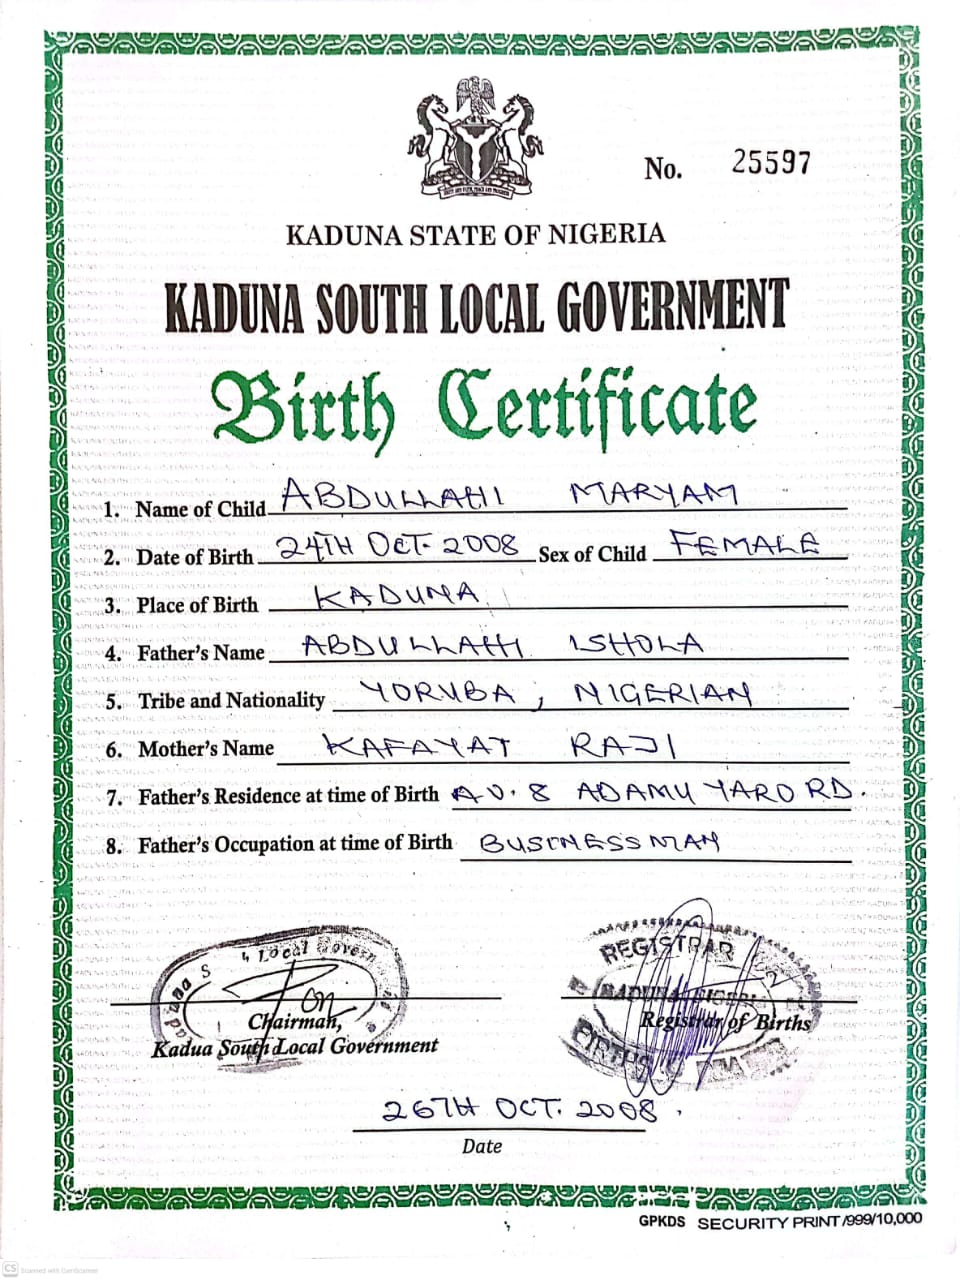 No. 25597
KADUNA STATE OF NIGERIA
KADUNA SOUTH LOCAL GOVERNMENT
Birth Certificate
1. Name of Child ABDULLAHI MARYAM
2. Date of Birth 24TH OCT. 2008 Sex of Child FEMALE
3. Place of Birth KADUNA
4. Father's Name ABDULLAHI ISHOLA
5. Tribe and Nationality YORUBA, NIGERIAN
6. Mother's Name KAFAYAT RAJI
7. Father's Residence at time of Birth NO. 8 ADAMU YARO RD.
8. Father's Occupation at time of Birth BUSINESSMAN
Local Govern
REGISTRAR
KADUNA NIGERIA
BIRTHS
Chairman,
Kadua South Local Government
Registrar of Births
26TH OCT. 2008.
Date
GPKDS SECURITY PRINT/999/10,000
CS Scanned with CamScanner